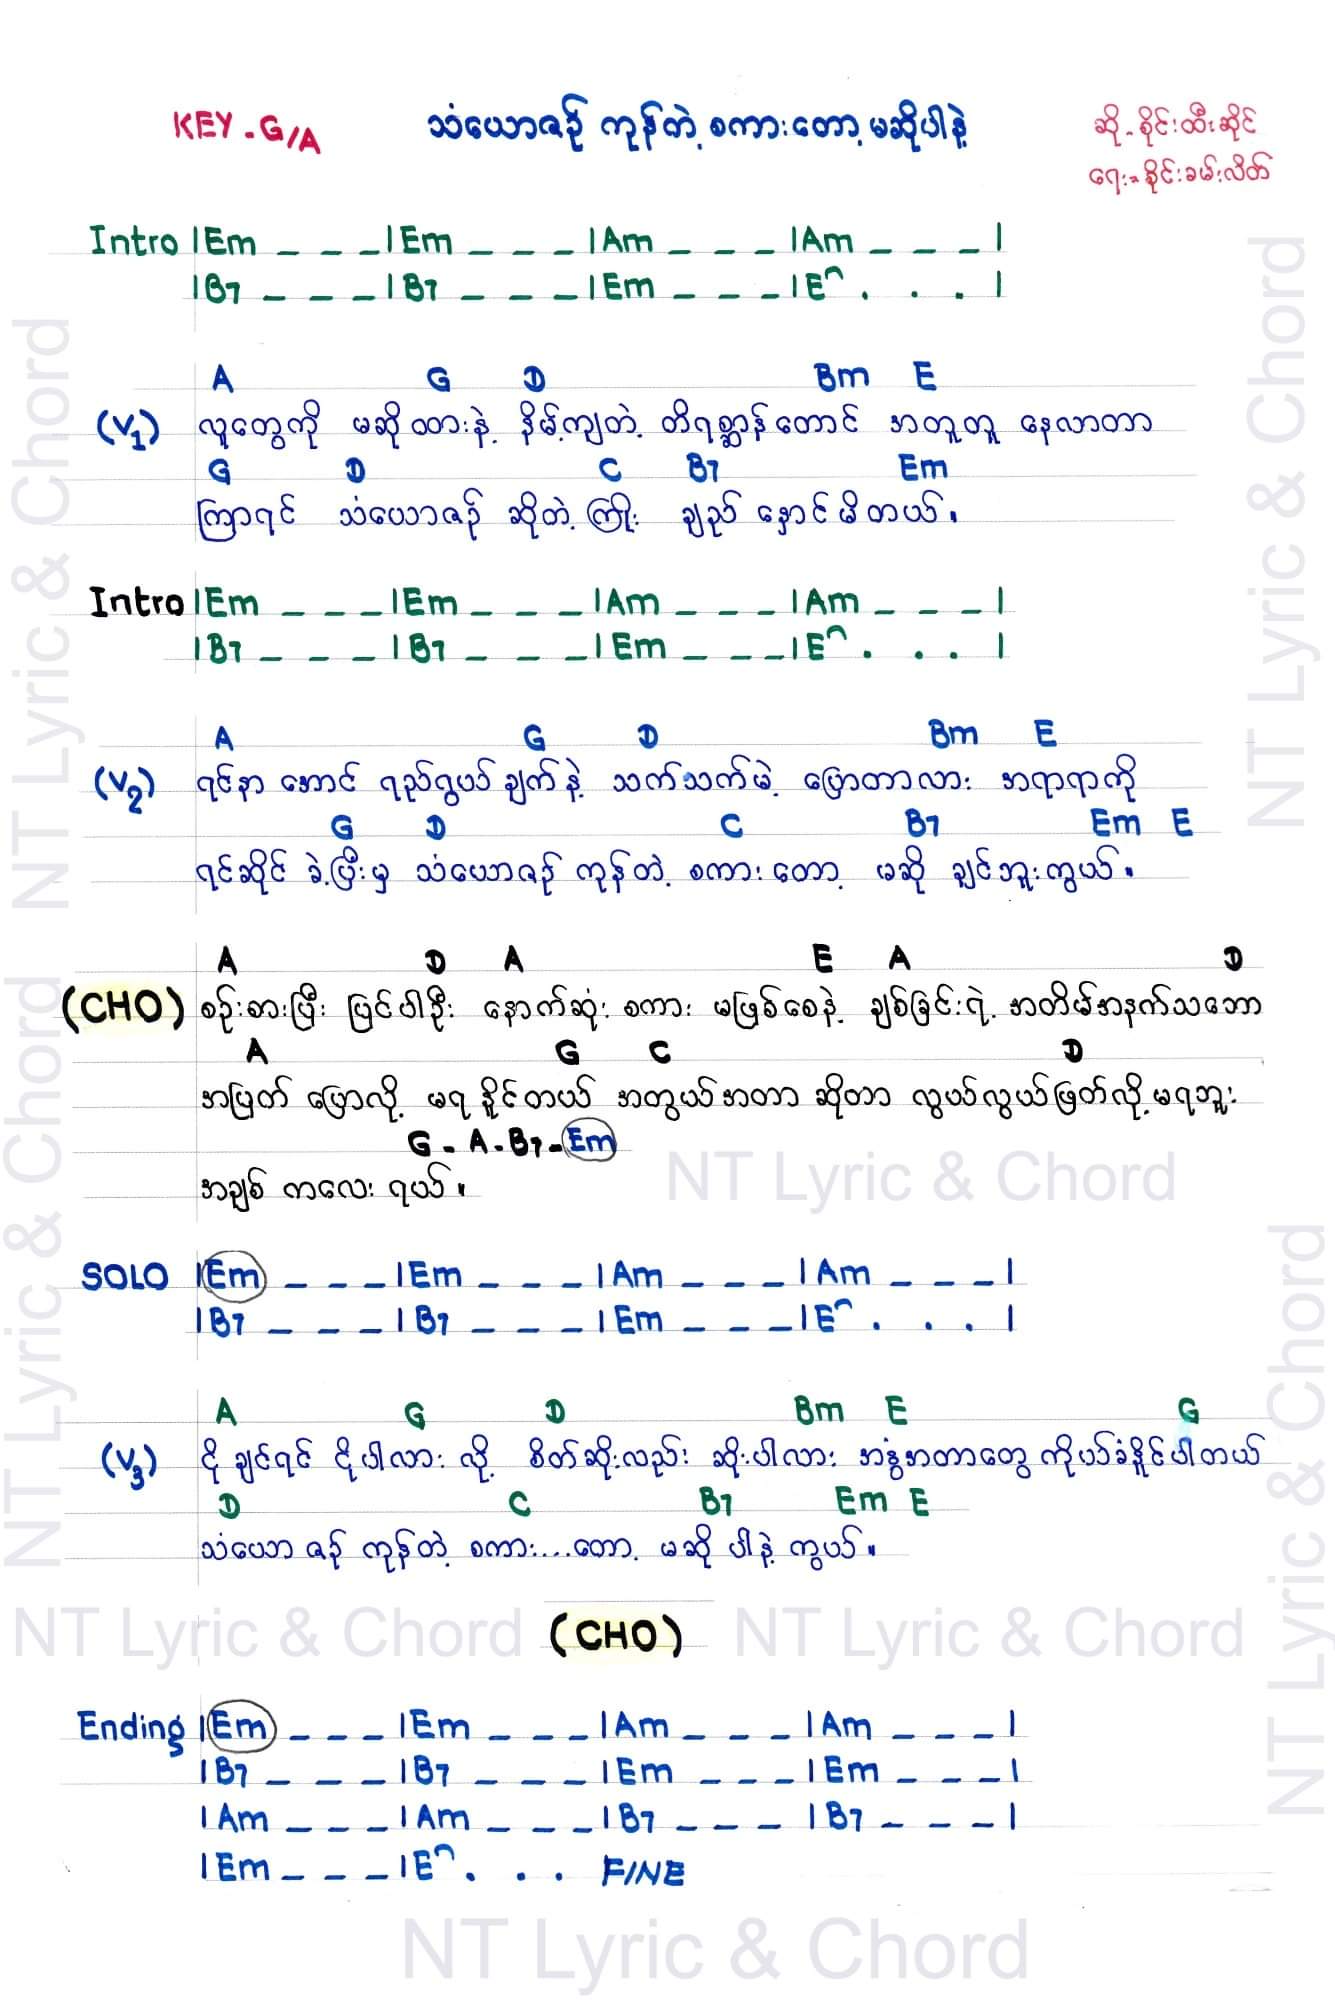 KEY - G/A
သံယောဇဉ် ကုန်တဲ့ စကားတော့ မဆိုပါနဲ့
ဆို - စိုင်းထီးဆိုင်
ရေး = စိုင်းခမ်းလိတ်
Intro |Em _ _ _|Em _ _ _|Am _ _ _|Am _ _ _|
|B7 _ _ _|B7 _ _ _|Em _ _ _|E^ . . .|
A G D Bm E
(V1) လူတွေကို မဆိုထားနဲ့ နိမ့်ကျတဲ့ တိရစ္ဆာန်တောင် အတူတူ နေလာတာ
G D C B7 Em
ကြာရင် သံယောဇဉ် ဆိုတဲ့ ကြိုး ချည်နှောင်မိတယ်။
Intro |Em _ _ _|Em _ _ _|Am _ _ _|Am _ _ _|
|B7 _ _ _|B7 _ _ _|Em _ _ _|E^ . . .|
A G D Bm E
(V2) ရင်နာအောင် ရည်ရွယ်ချက်နဲ့ သက်သက်မဲ့ ပြောတာလား အရာရာကို
G D C B7 Em E
ရင်ဆိုင်ခဲ့ပြီးမှ သံယောဇဉ် ကုန်တဲ့ စကားတော့ မဆိုချင်ဘူးကွယ်။
A D A E A D
(CHO) စဉ်းစားပြီး ပြင်ပါဦး နောက်ဆုံး စကား မဖြစ်စေနဲ့ ချစ်ခြင်းရဲ့ အတိမ်အနက်သဘော
A G C D
အပြတ် ပြောလို့ မရနိုင်တယ် အတွယ်အတာ ဆိုတာ လွယ်လွယ်ဖြတ်လို့မရဘူး
G - A - B7 - Em
အချစ် ကလေး ရယ်။
SOLO |Em _ _ _|Em _ _ _|Am _ _ _|Am _ _ _|
|B7 _ _ _|B7 _ _ _|Em _ _ _|E^ . . .|
A G D Bm E G
(V3) ငိုချင်ရင် ငိုပါလားလို့ စိတ်ဆိုးလည်း ဆိုးပါလား အနွံအတာတွေ ကိုယ်ခံနိုင်ပါတယ်
D C B7 Em E
သံယောဇဉ် ကုန်တဲ့ စကား...တော့ မဆိုပါနဲ့ ကွယ်။
(CHO)
Ending |Em _ _ _|Em _ _ _|Am _ _ _|Am _ _ _|
|B7 _ _ _|B7 _ _ _|Em _ _ _|Em _ _ _|
|Am _ _ _|Am _ _ _|B7 _ _ _|B7 _ _ _|
|Em _ _ _|E^ . . . FINE
NT Lyric & Chord
NT Lyric & Chord
NT Lyric & Chord
NT Lyric & Chord
NT Lyric & Chord
NT Lyric & Chord
NT Lyric & Chord
NT Lyric & Chord